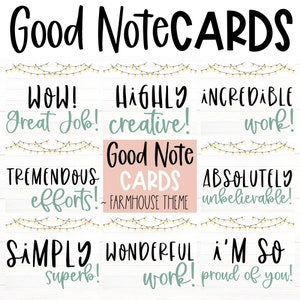 Good Note CARDS
WOW!
Great Job!
HiGHLY
creative!
iNCREDiBLE
work!
TREMENDOUS
efforts!
Good Note
CARDS
~ FARMHOUSE THEME
ABSOLUTELY
unbelievable!
SiMPLY
superb!
WONDERFUL
work!
i'M SO
proud of you!